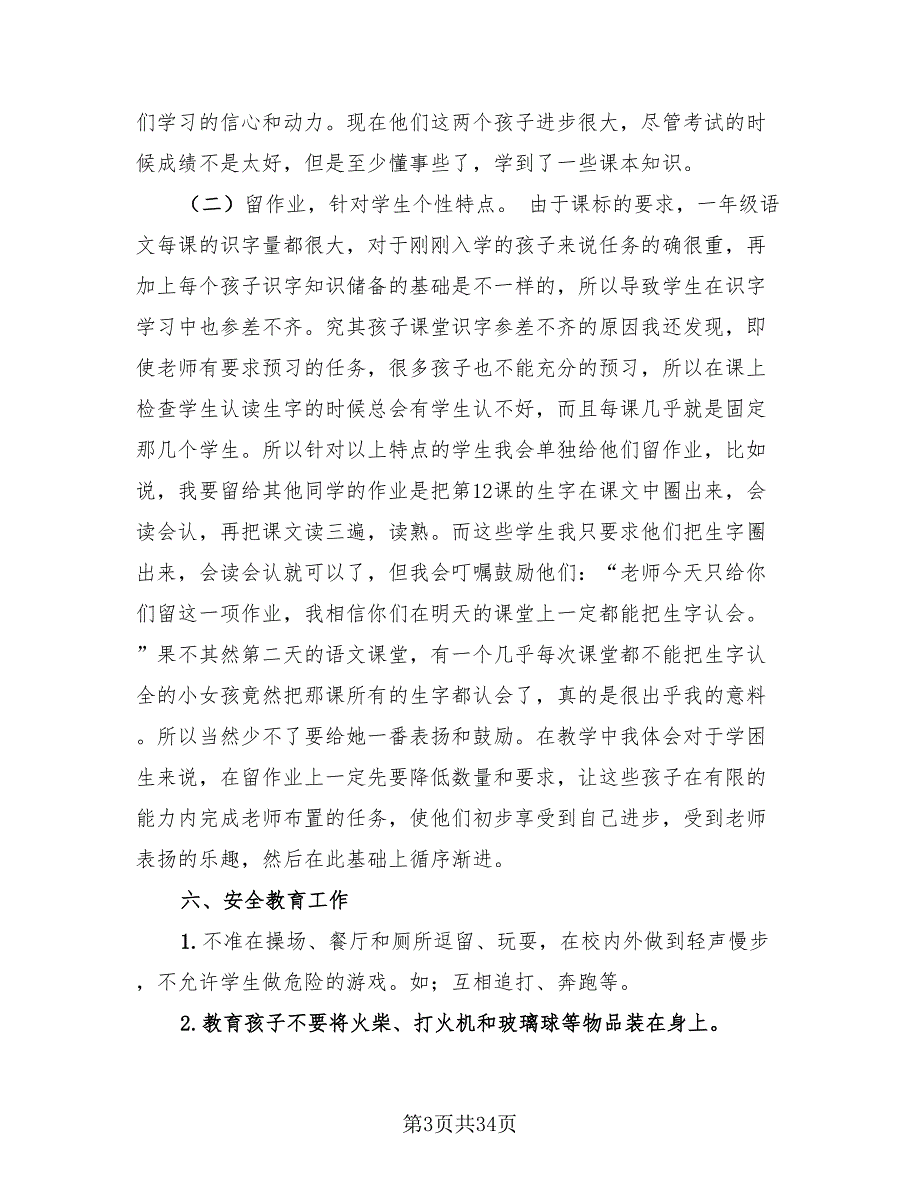 们学习的信心和动力。现在他们这两个孩子进步很大，尽管考试的时
候成绩不是太好，但是至少懂事些了，学到了一些课本知识。
（二）留作业，针对学生个性特点。 由于课标的要求，一年级语
文每课的识字量都很大，对于刚刚入学的孩子来说任务的确很重，再
加上每个孩子识字知识储备的基础是不一样的，所以导致学生在识字
学习中也参差不齐。究其孩子课堂识字参差不齐的原因我还发现，即
使老师有要求预习的任务，很多孩子也不能充分的预习，所以在课上
检查学生认读生字的时候总会有学生认不好，而且每课几乎就是固定
那几个学生。所以针对以上特点的学生我会单独给他们留作业，比如
说，我要留给其他同学的作业是把第12课的生字在课文中圈出来，会
读会认，再把课文读三遍，读熟。而这些学生我只要求他们把生字圈
出来，会读会认就可以了，但我会叮嘱鼓励他们：“老师今天只给你
们留这一项作业，我相信你们在明天的课堂上一定都能把生字认会。
”果不其然第二天的语文课堂，有一个几乎每次课堂都不能把生字认
全的小女孩竟然把那课所有的生字都认会了，真的是很出乎我的意料
。所以当然少不了要给她一番表扬和鼓励。在教学中我体会对于学困
生来说，在留作业上一定先要降低数量和要求，让这些孩子在有限的
能力内完成老师布置的任务，使他们初步享受到自己进步，受到老师
表扬的乐趣，然后在此基础上循序渐进。
六、安全教育工作
1.不准在操场、餐厅和厕所逗留、玩耍，在校内外做到轻声慢步
，不允许学生做危险的游戏。如；互相追打、奔跑等。
2.教育孩子不要将火柴、打火机和玻璃球等物品装在身上。
第3页共34页